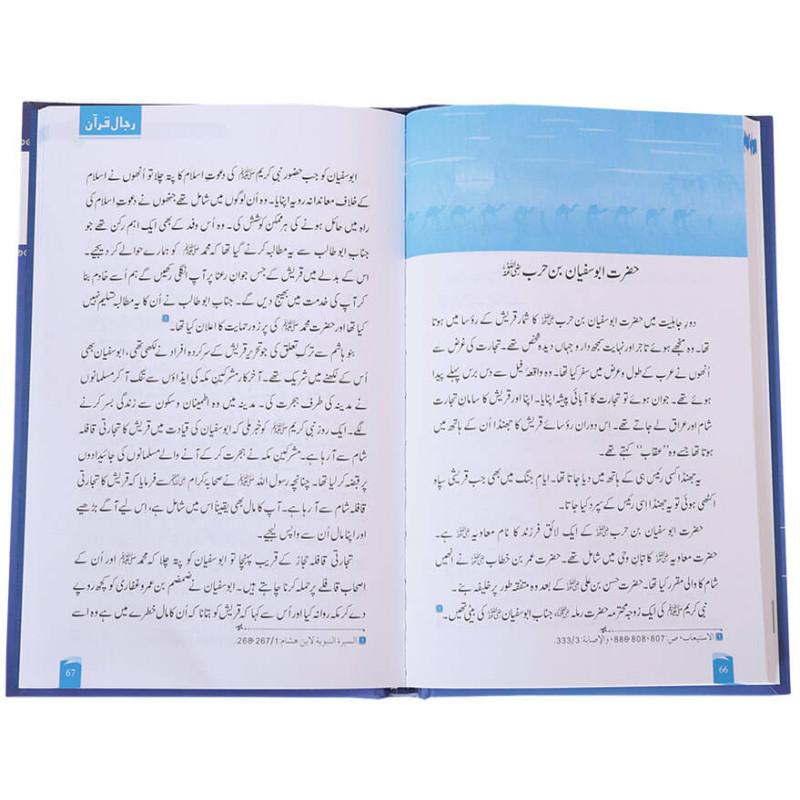 حضرت ابوسفیان بن حرب رضی اللہ عنہ
دورِ جاہلیت میں حضرت ابوسفیان بن حرب رضی اللہ عنہ کا شمار قریش کے رؤسا میں ہوتا
تھا۔ وہ منجھے ہوئے تاجر اور نہایت سمجھ دار و جہاں دیدہ شخص تھے۔ تجارت کی غرض سے
اُنھوں نے عرب کے طول و عرض میں سفر کیا تھا۔ وہ واقعۂ فیل سے دس برس پہلے پیدا
ہوئے تھے۔ جوان ہوئے تو تجارت کا آبائی پیشہ اپنایا۔ اپنا اور قریش کا سامانِ تجارت
شام اور عراق لے جاتے تھے۔ اس دوران رؤسائے قریش کا جھنڈا اُن کے ہاتھ میں
ہوتا تھا جسے وہ ’’عقاب‘‘ کہتے تھے۔
یہ جھنڈا کسی رئیس ہی کے ہاتھ میں دیا جاتا تھا۔ ایامِ جنگ میں بھی جب قریشی سپاہ
اکٹھی ہوتی تو یہ جھنڈا اسی رئیس کے سپرد کیا جاتا۔
حضرت ابوسفیان بن حرب رضی اللہ عنہ کے ایک لائق فرزند کا نام معاویہ رضی اللہ عنہ ہے۔
حضرت معاویہ رضی اللہ عنہ کاتبانِ وحی میں شامل تھے۔ حضرت عمر بن خطاب رضی اللہ عنہ نے انھیں
شام کا والی مقرر کیا تھا۔ حضرت حسن بن علی رضی اللہ عنہ کے بعد وہ متفقہ طور پر خلیفہ بنے۔
نبی کریم ﷺ کی ایک زوجہ محترمہ حضرت رملہ، جناب ابوسفیان رضی اللہ عنہ کی بیٹی تھیں۔
الاستيعاب، ص: 807، 808، 886، والإصابة: 333/3.
66
رجال قرآن
ابوسفیان کو جب حضور نبی کریم ﷺ کی دعوتِ اسلام کا پتہ چلا تو اُنھوں نے اسلام
کے خلاف معاندانہ رویہ اپنایا۔ وہ اُن لوگوں میں شامل تھے جنھوں نے دعوتِ اسلام کی
راہ میں حائل ہونے کی ہر ممکن کوشش کی۔ وہ اُس وفد کے بھی ایک اہم رکن تھے جو
جناب ابو طالب سے یہ مطالبہ کرنے گیا تھا کہ محمد ﷺ کو ہمارے حوالے کر دیجیے۔
اس کے بدلے میں قریش کے جس جوانِ رعنا پر آپ انگلی رکھیں گے ہم اُسے خادم بنا
کر آپ کی خدمت میں بھیج دیں گے۔ جناب ابو طالب نے اُن کا یہ مطالبہ تسلیم نہیں
کیا تھا اور حضرت محمد ﷺ کی پرزور حمایت کا اعلان کیا تھا۔
بنو ہاشم سے ترکِ تعلق کی جو تحریر قریش کے سرکردہ افراد نے لکھی تھی، ابوسفیان بھی
اُس کے لکھنے میں شریک تھے۔ آخر کار مشرکینِ مکہ کی ایذاؤں سے تنگ آ کر مسلمانوں
نے مدینہ کی طرف ہجرت کی۔ مدینہ میں وہ اطمینان و سکون سے زندگی بسر کرنے
لگے۔ ایک روز نبی کریم ﷺ کو خبر ملی کہ ابوسفیان کی قیادت میں قریش کا تجارتی قافلہ
شام سے آ رہا ہے۔ مشرکینِ مکہ نے ہجرت کر کے آنے والے مسلمانوں کی جائیدادوں
پر قبضہ کر لیا تھا۔ چنانچہ رسول اللہ ﷺ نے صحابہ کرام سے فرمایا کہ قریش کا تجارتی
قافلہ شام سے آ رہا ہے۔ آپ کا مال بھی یقیناً اس میں شامل ہے، اس لیے آگے بڑھیے
اور اپنا مال اُن سے واپس لیجیے۔
تجارتی قافلہ حجاز کے قریب پہنچا تو ابوسفیان کو پتہ چلا کہ محمد ﷺ اور اُن کے
اصحاب قافلے پر حملہ کرنا چاہتے ہیں۔ ابوسفیان نے ضمضم بن عمرو غفاری کو کچھ روپے
دے کر مکہ روانہ کیا اور اُس سے کہا کہ قریش کو بتانا کہ اُن کا مال خطرے میں ہے وہ اسے
السيرة النبوية لابن هشام: 267/1، 268.
67